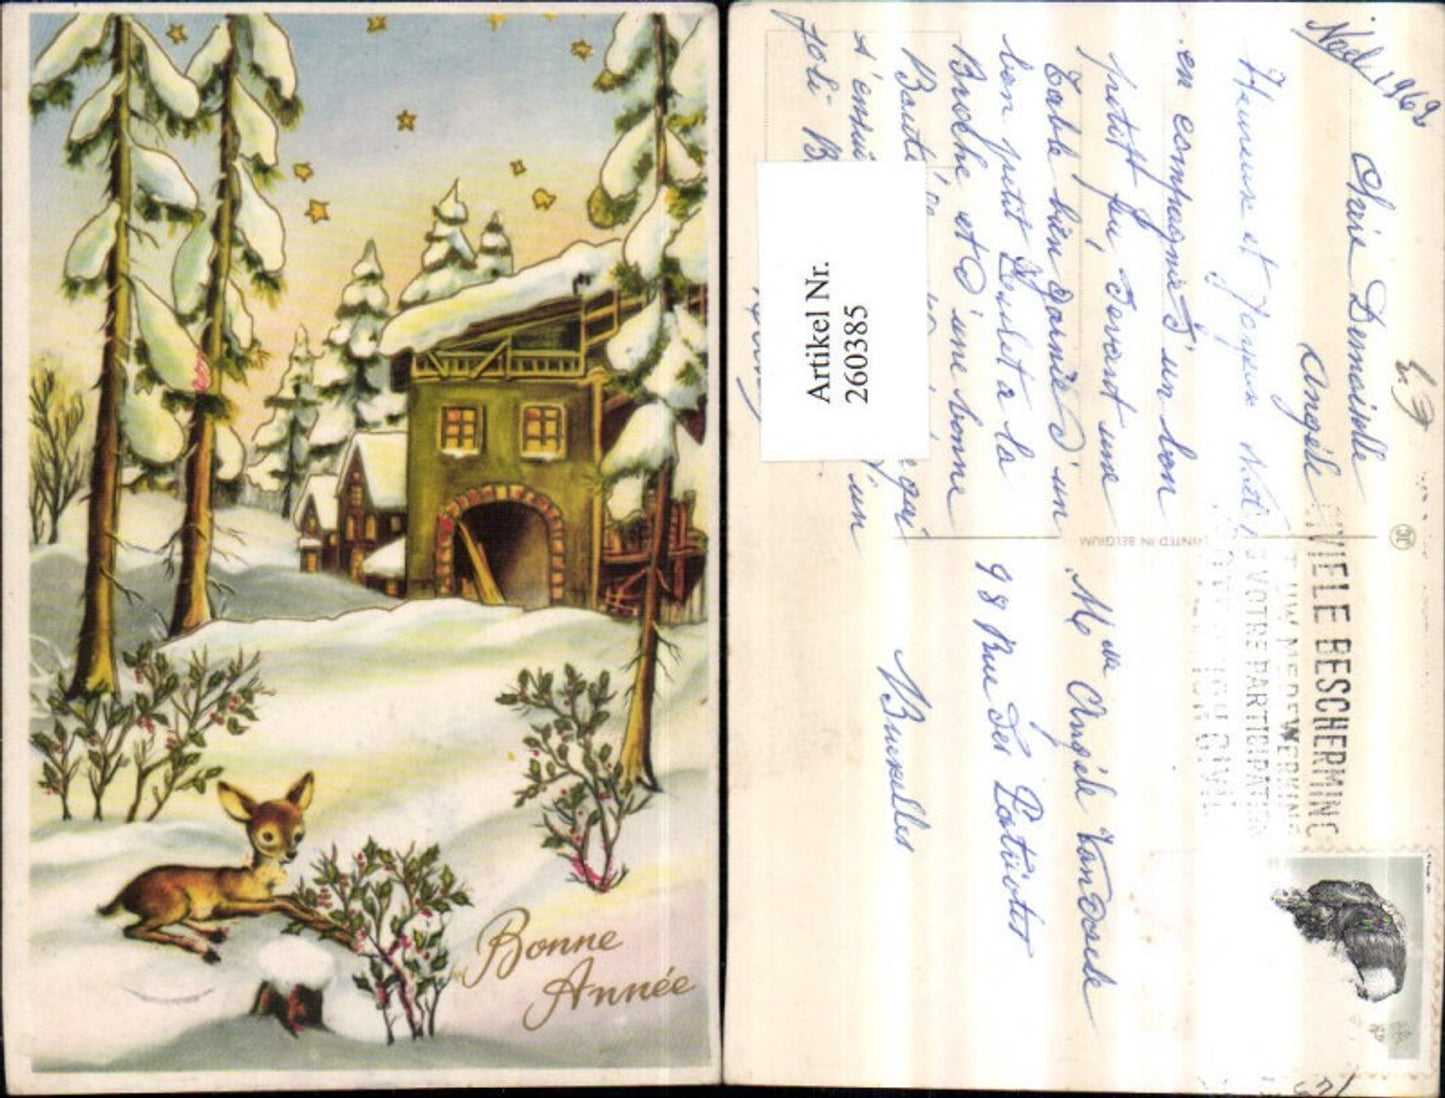 Bonne
Année
Noël 1969
Chère Demoiselle
Angèle
Heureux et Joyeux Noël
en compagnie d'un bon
petit feu, devant une
Table bien garnie d'un
bon petit Boulet à la
Broche et d'une bonne
qui
s'ensui
un
joli B
Artikel Nr.
260385
PRINTED IN BELGIUM
Melle Angèle
98 Rue des Patriotes
Bruxelles
CIVIELE BESCHERMING
UW MEDEWERKING
VOTRE PARTICIPATION